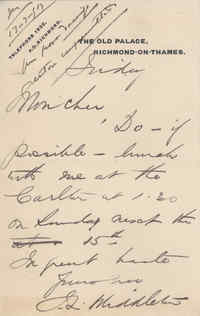 THE OLD PALACE,
RICHMOND-ON-THAMES.
TELEPHONE 1230.
P.O. RICHMOND.
Friday
Mon cher
Do – if
possible – lunch
with me at the
Carlton at 1.30
on Sunday next the
15th
In great haste
Yours
J. Middleton